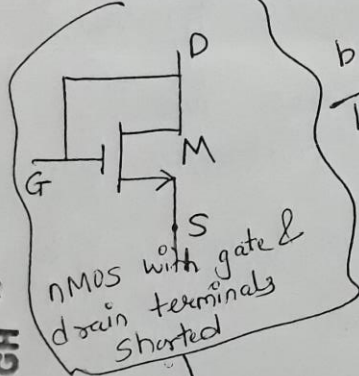 D
b
M
G
S
nMOS with gate &
drain terminals
shorted
GH